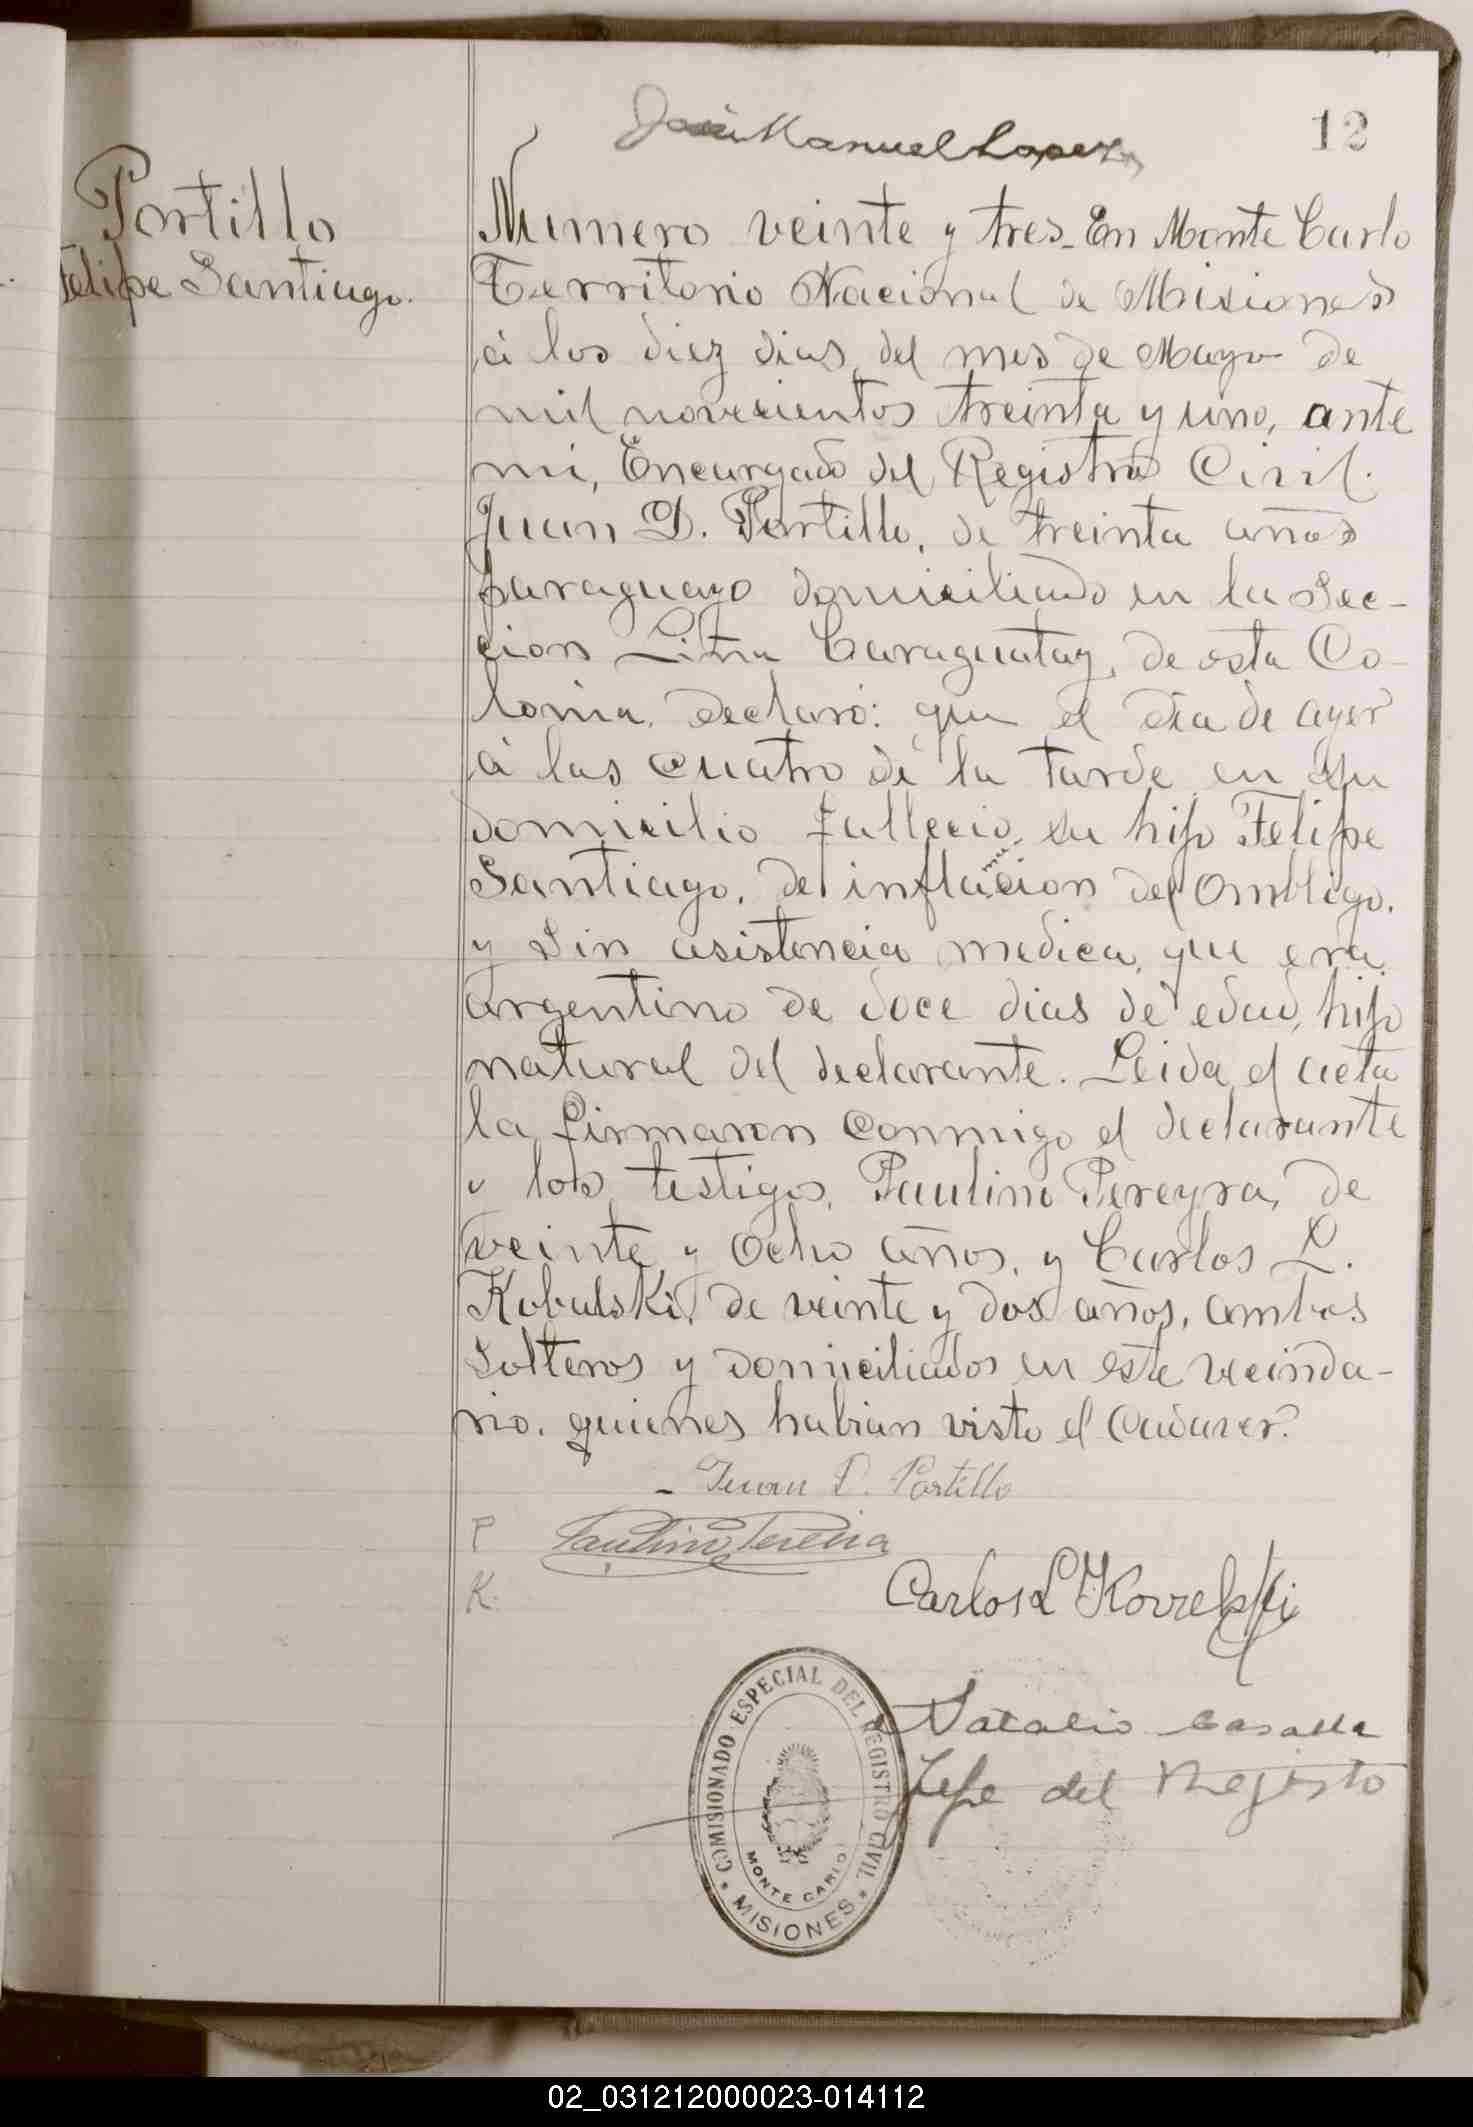 José Manuel Lopez
12
Portillo
Felipe Santiago.
Numero veinte y tres - En Monte Carlo
Territorio Nacional de Misiones
á los diez dias del mes de Mayo de
mil novecientos treinta y uno, ante
mi, Encargado del Registro Civil.
Juan D. Portillo, de treinta años
paraguayo domiciliado en la Sec-
cion Linea Caraguatay, de esta Co-
lonia, declaró: que el dia de ayer
á las cuatro de la tarde en su
domicilio falleció, su hijo Felipe
Santiago, de inflamacion del Ombligo,
y sin asistencia medica, que era
argentino de doce dias de edad, hijo
natural del declarante. Leida el acta
la firmaron conmigo el declarante
y los testigos, Paulino Pereyra, de
veinte y ocho años, y Carlos L.
Kobalski, de veinte y dos años, ambos
solteros y domiciliados en este vecinda-
rio. quienes habian visto el Cadaver.
- Juan D. Portillo
P Paulino Pereira
K. Carlos L Kovvelski
COMISIONADO ESPECIAL DEL REGISTRO CIVIL
MONTE CARLO
* MISIONES *
Natalio Casalla
Jefe del Registo
02_031212000023-014112